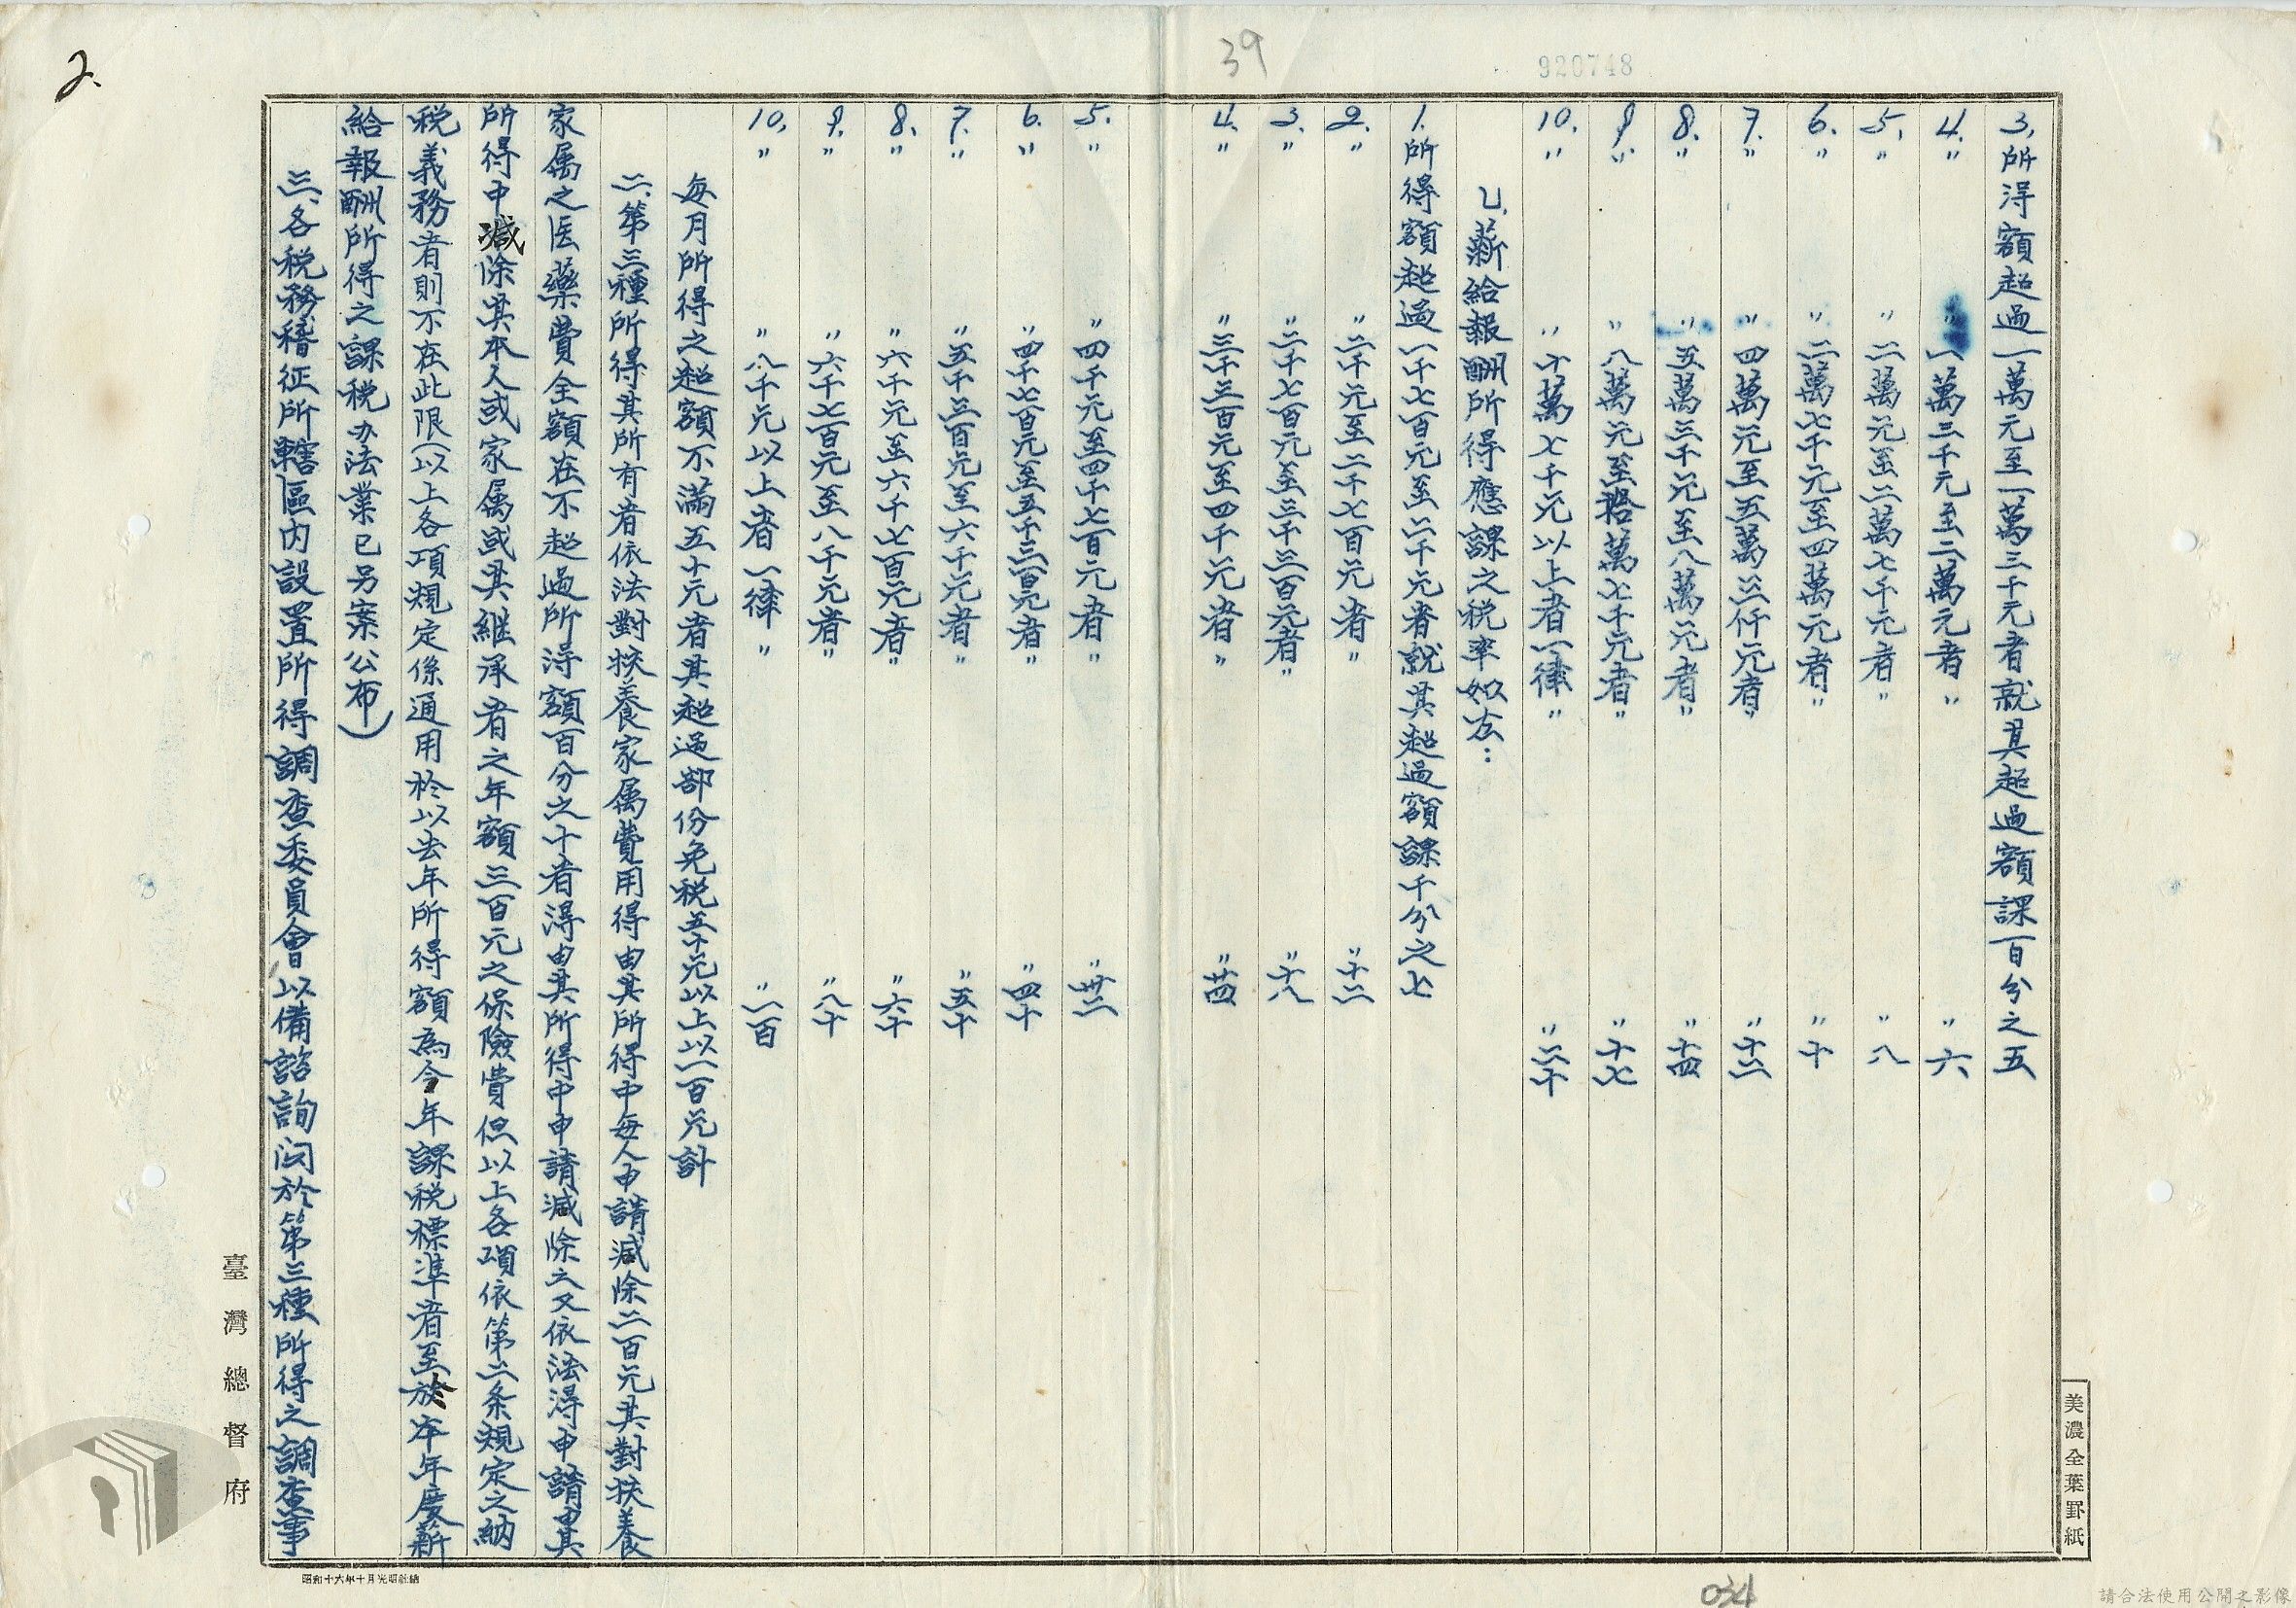 2.
39
920748
3.所得額超過一萬元至一萬三千元者就其超過額課百分之五
4.〃 〃一萬三千元至二萬元者〃 〃六
5.〃 〃二萬元至二萬七千元者〃 〃八
6.〃 〃二萬七千元至四萬元者〃 〃十
7.〃 〃四萬元至五萬三仟元者〃 〃十二
8.〃 〃五萬三千元至八萬元者〃 〃十四
9.〃 〃八萬元至拾萬七千元者〃 〃十七
10.〃 〃十萬七千元以上者一律〃 〃二十
乙.薪給報酬所得應課之税率如左：
1.所得額超過一千七百元至二千元者就其超過額課千分之七
2.〃 〃二千元至二千七百元者〃 〃十二
3.〃 〃二千七百元至三千三百元者〃 〃十八
4.〃 〃三千三百元至四千元者〃 〃廿四
5.〃 〃四千元至四千七百元者〃 〃卅二
6.〃 〃四千七百元至五千三百元者〃 〃四十
7.〃 〃五千三百元至六千元者〃 〃五十
8.〃 〃六千元至六千七百元者〃 〃六十
9.〃 〃六千七百元至八千元者〃 〃八十
10.〃 〃八千元以上者一律〃 〃一百
每月所得之超額不滿五十元者其超過部份免税五十元以上以一百元計
二.第三種所得其所有者依法對扶養家属費用得由其所得中每人申請減除二百元其對扶養
家属之医藥費全額在不超過所得額百分之十者得由其所得中申請減除之又依法得申請由其
所得中減除其本人或家属或其継承者之年額三百元之保險費但以上各項依第二条規定之納
税義務者則不在此限(以上各項規定係通用於以去年所得額為今年課税標準者至於本年度薪
給報酬所得之課税办法業已另案公布)
三.各税務稽征所轄區内設置所得調查委員會以備諮詢関於第三種所得之調查事
臺灣總督府
美濃全葉罫紙
昭和十六年十月光明社納
034
請合法使用公開之影像